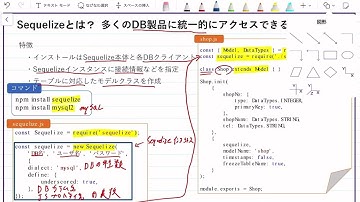 Sequelizeとは? 多くのDB製品に統一的にアクセスできる
特徴
・インストールはSequelize本体と各DBクライアント
・Sequelizeインスタンスに接続情報などを指定
・テーブルに対応したモデルクラスを作成
コマンド
npm install sequelize
npm install mysql2
mySQL
sequelize.js
const Sequelize = require('sequelize');
const sequelize = new Sequelize(
'DB名', 'ユーザ名', 'パスワード',
{
dialect: 'mysql',
DBの種類
define: {
underscored: true,
}
});
shop.js
const { Model, DataTypes } =
const sequelize = require('.
class Shop extends Model {
Shop.init(
{
shopNo: {
type: DataTypes.INTEGER,
primaryKey: true,
shopNm: DataTypes.STRING,
tel: DataTypes.STRING,
},
{
sequelize,
modelName: 'shop',
timestamps: false,
freezeTableName: true,
}
);
module.exports = Shop;
図形